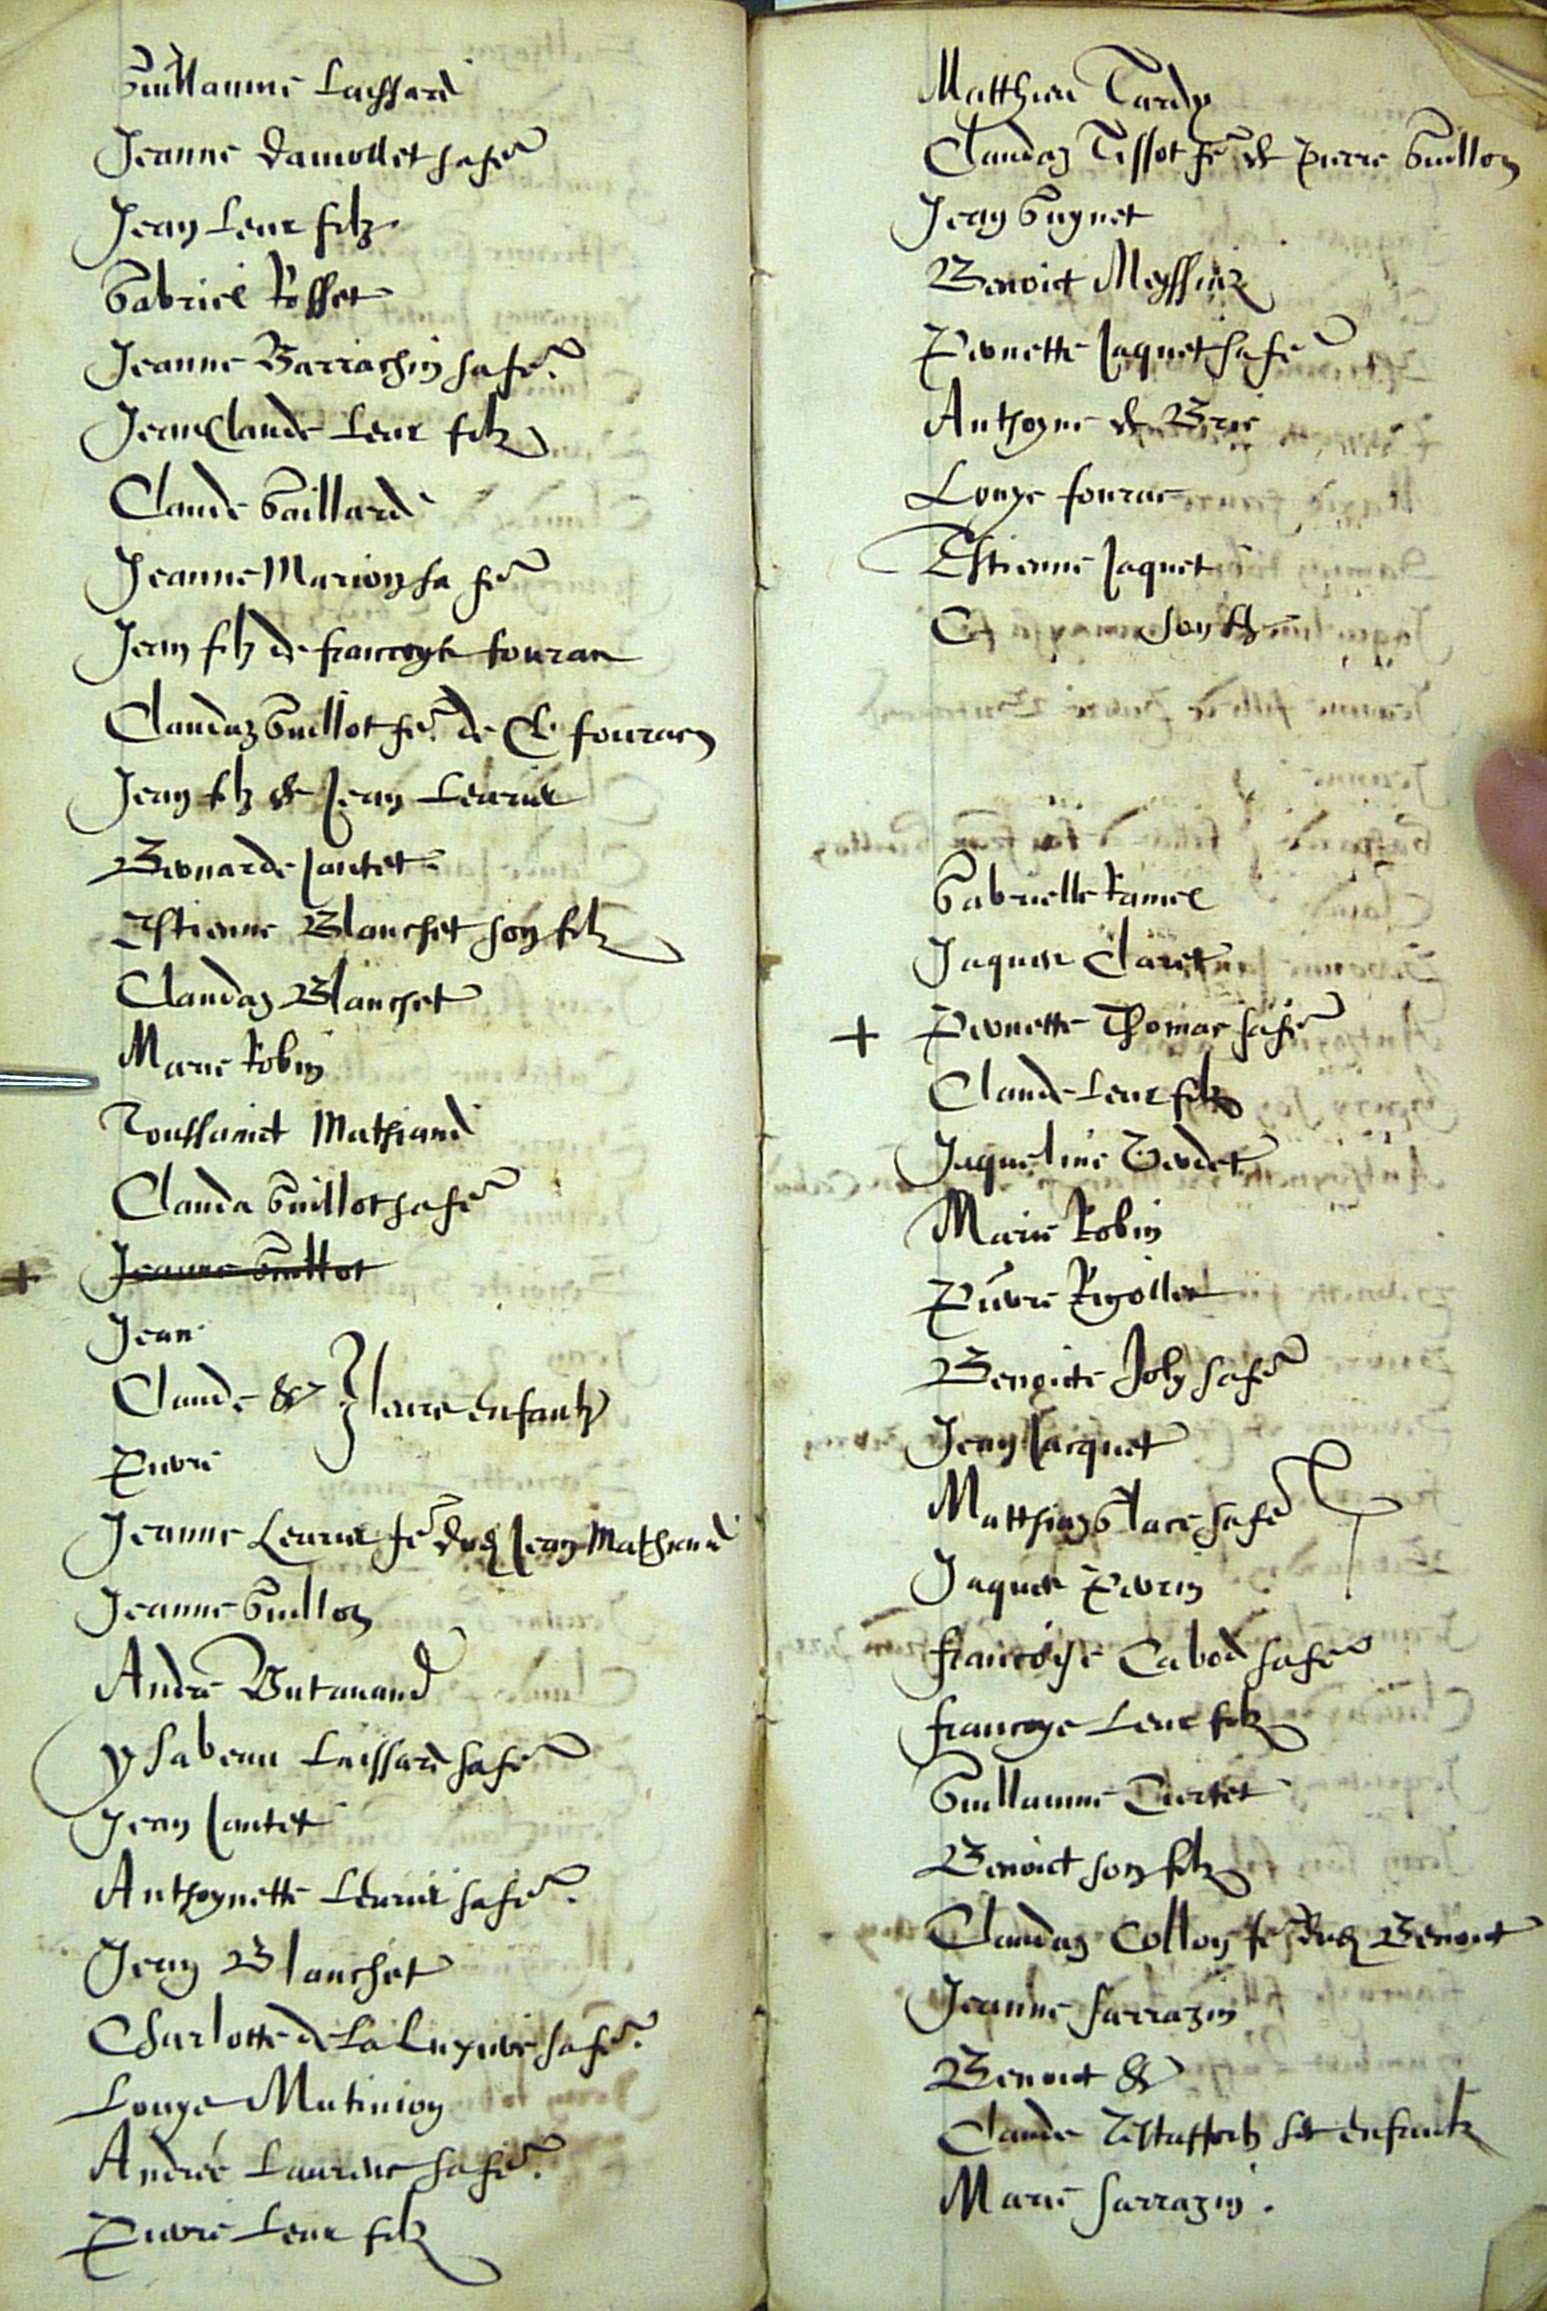 Guillaume Laissard
Jeanne Damollet sa fe
Jean leur filz
Gabriel Rosset
Jeanne Barrachin sa fe.
Jean Claude leur filz
Claude Gaillard
Jeanne Marion sa fe
Jean filz de francoys fouran
Claudaz Guillot fe de Cl. fouran
Jean filz de Jean
Bernarde Jantet
Estienne Blanchet son filz
Claudaz Blanchet
Marie Robin
Toussainct Mathiaud
Clauda Guillot sa fe
+ Jeanne Guillot
Jean
Claude & leurs enfantz
Pierre
Jeanne fe dud Jean Mathiaud
Jeanne Guillon
André Butavand
Ysabeau Laissard sa fe
Jean Jantet
Anthoynette sa fe.
Jean Blanchet
Charlotte de la sa fe.
Louys Matinion
Andrée sa fe.
Pierre leur filz
Matthieu Tardy
Claudaz Tissot fe de pierre Guillon
Jean Guynet
Benoict
Pernette Jaquet sa fe
Anthoyne de Brie
Louys
Estienne Jaquet
C son
Gabrielle Ramel
Jaques Claret
+ Pernette Thomas sa fe
Claude leur filz
Jaqueline
Marie Robin
Pierre Rigollet
Benoicte Joly sa fe
Jean Jacquet
Matthiaz Glace sa fe
Jaques Perrin
francoyse Cabod sa fe
francoys leur filz
Guillaume Tiertet
Benoict son filz
Claudaz Collon fe dud Benoict
Jeanne Sarrazin
Benoict &
Claude ses enfantz
Marie Sarrazin.